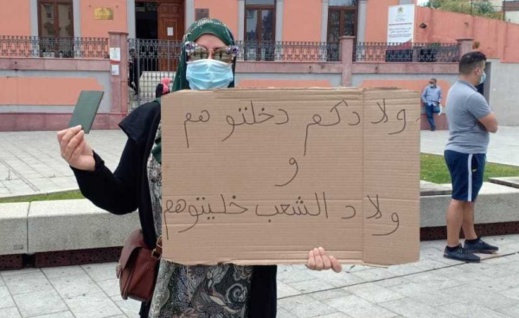 ولادكم دخلتوهم
و
ولاد الشعب خليتوهم